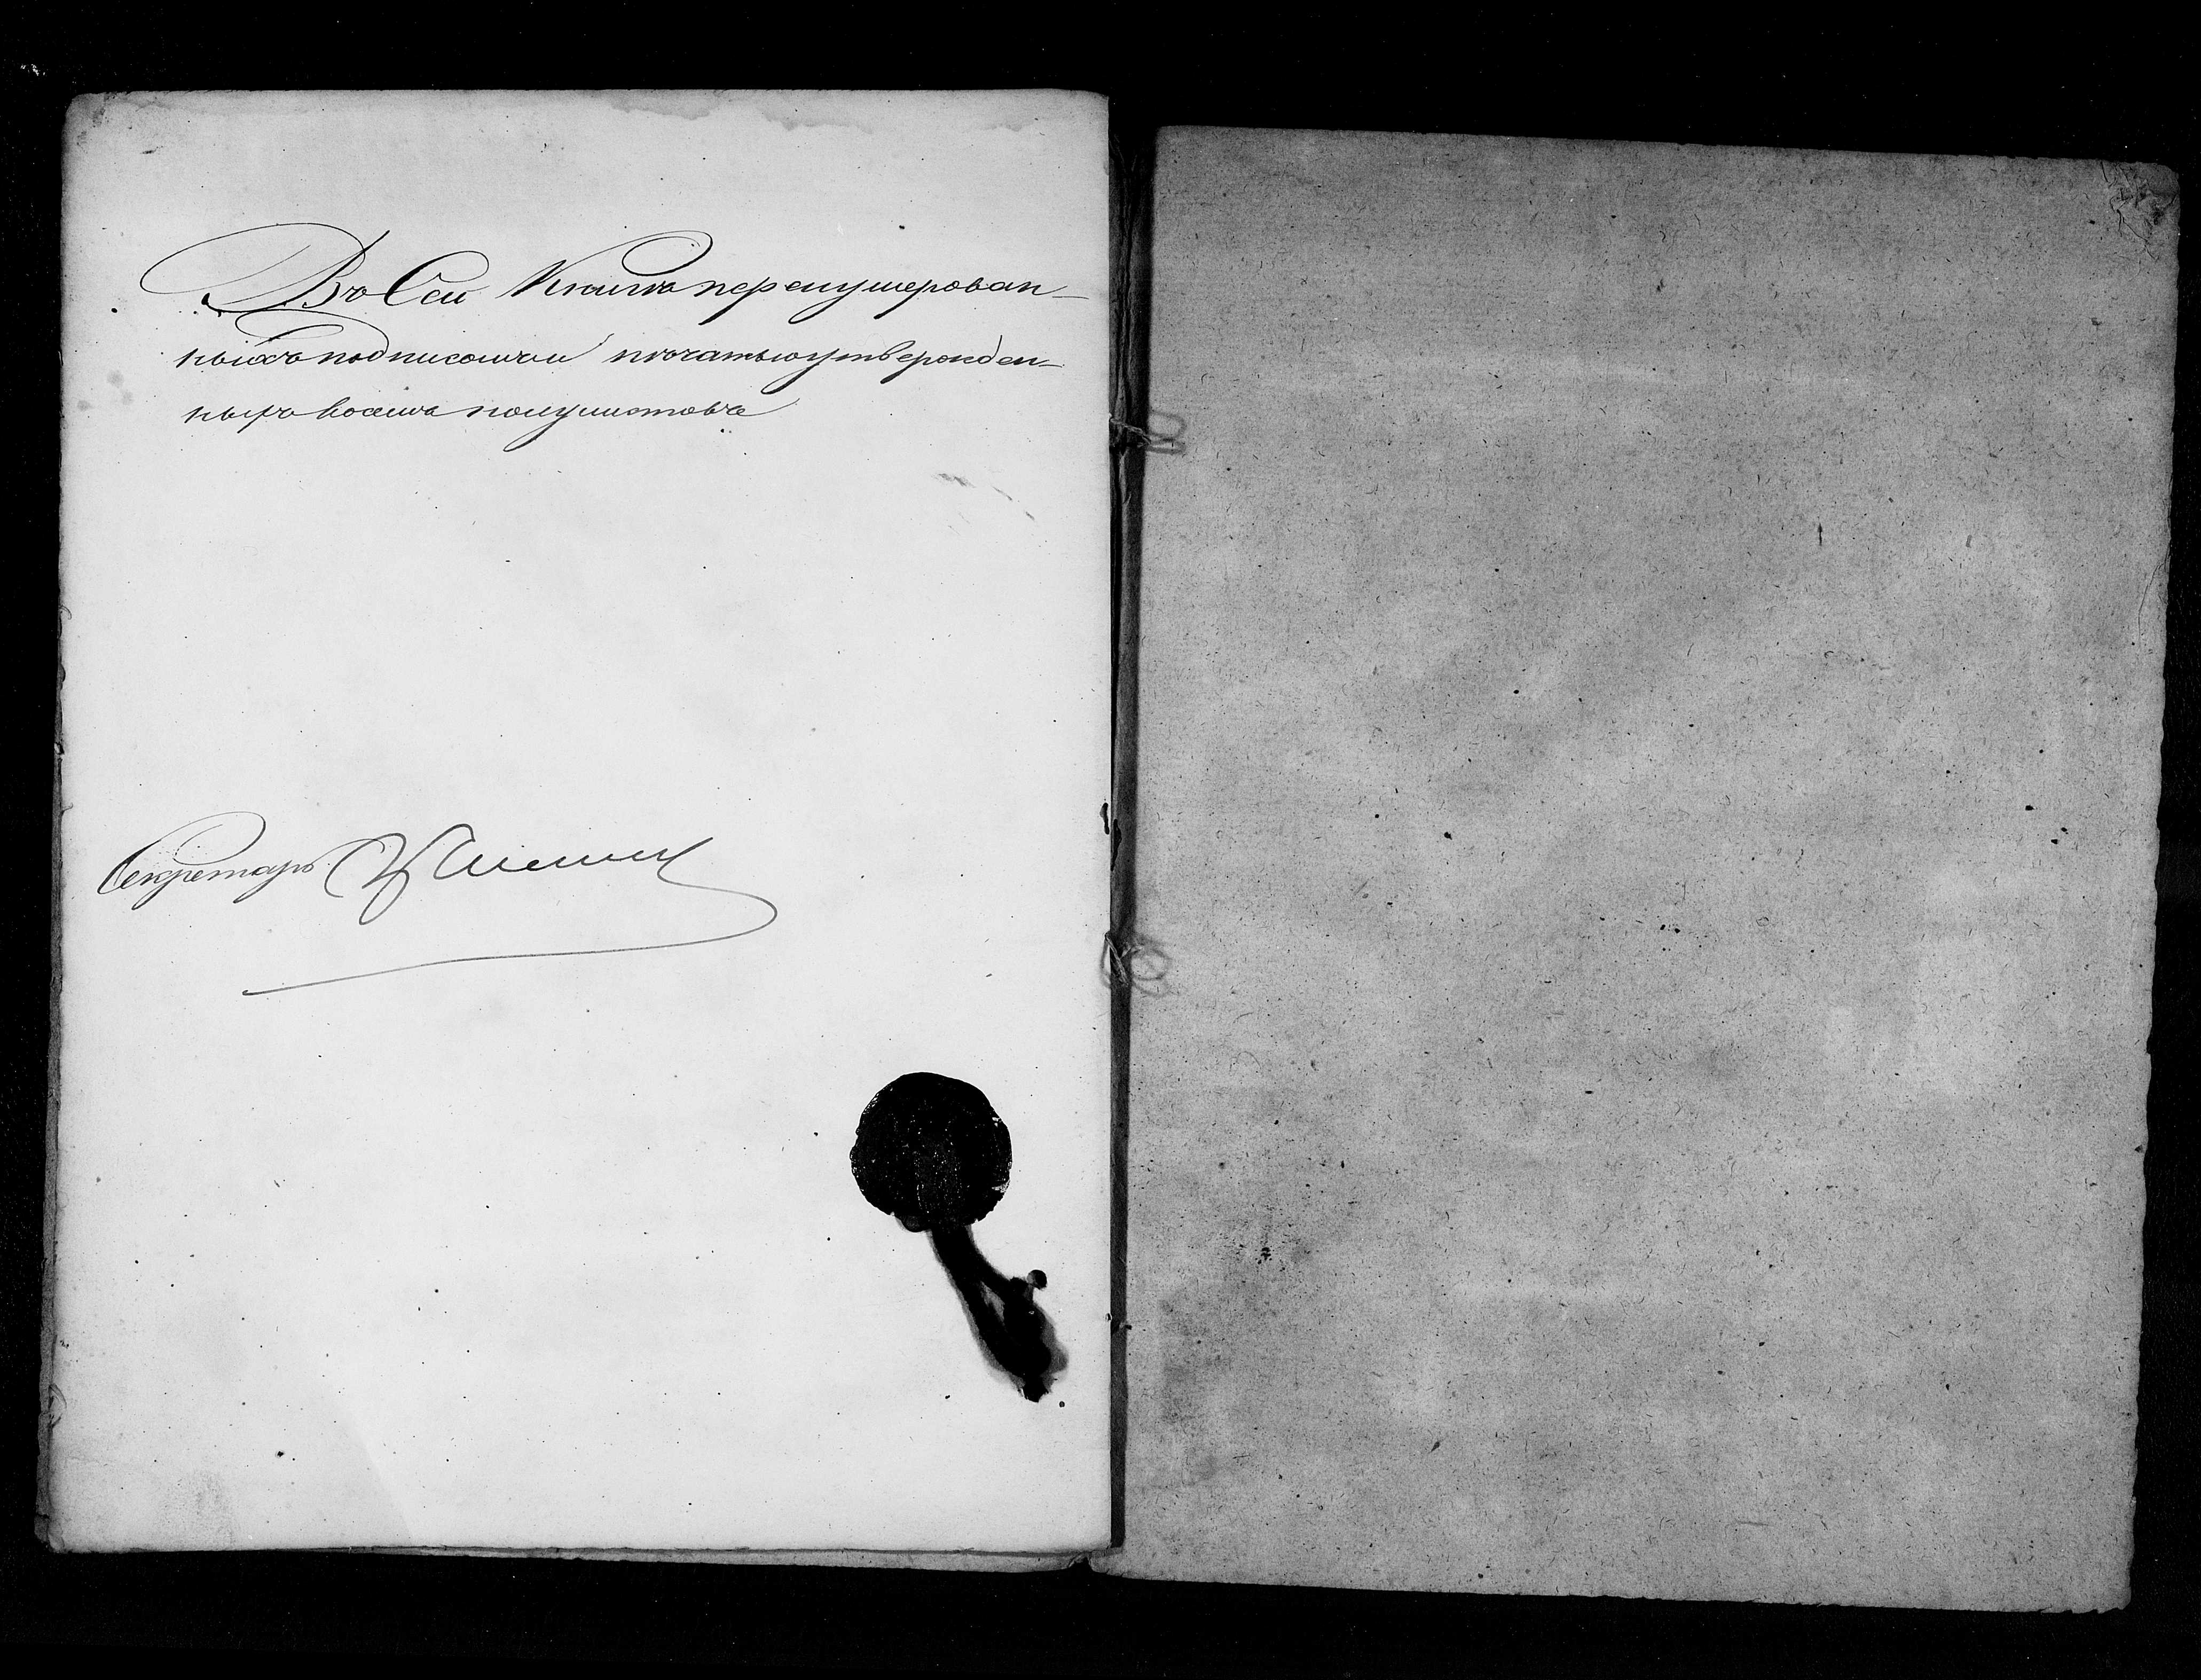 Въ Сей Книгѣ перенумерован-
ныхъ подписомъ и печатью утвержден-
ныхъ восемь полулистовъ
Секретарь